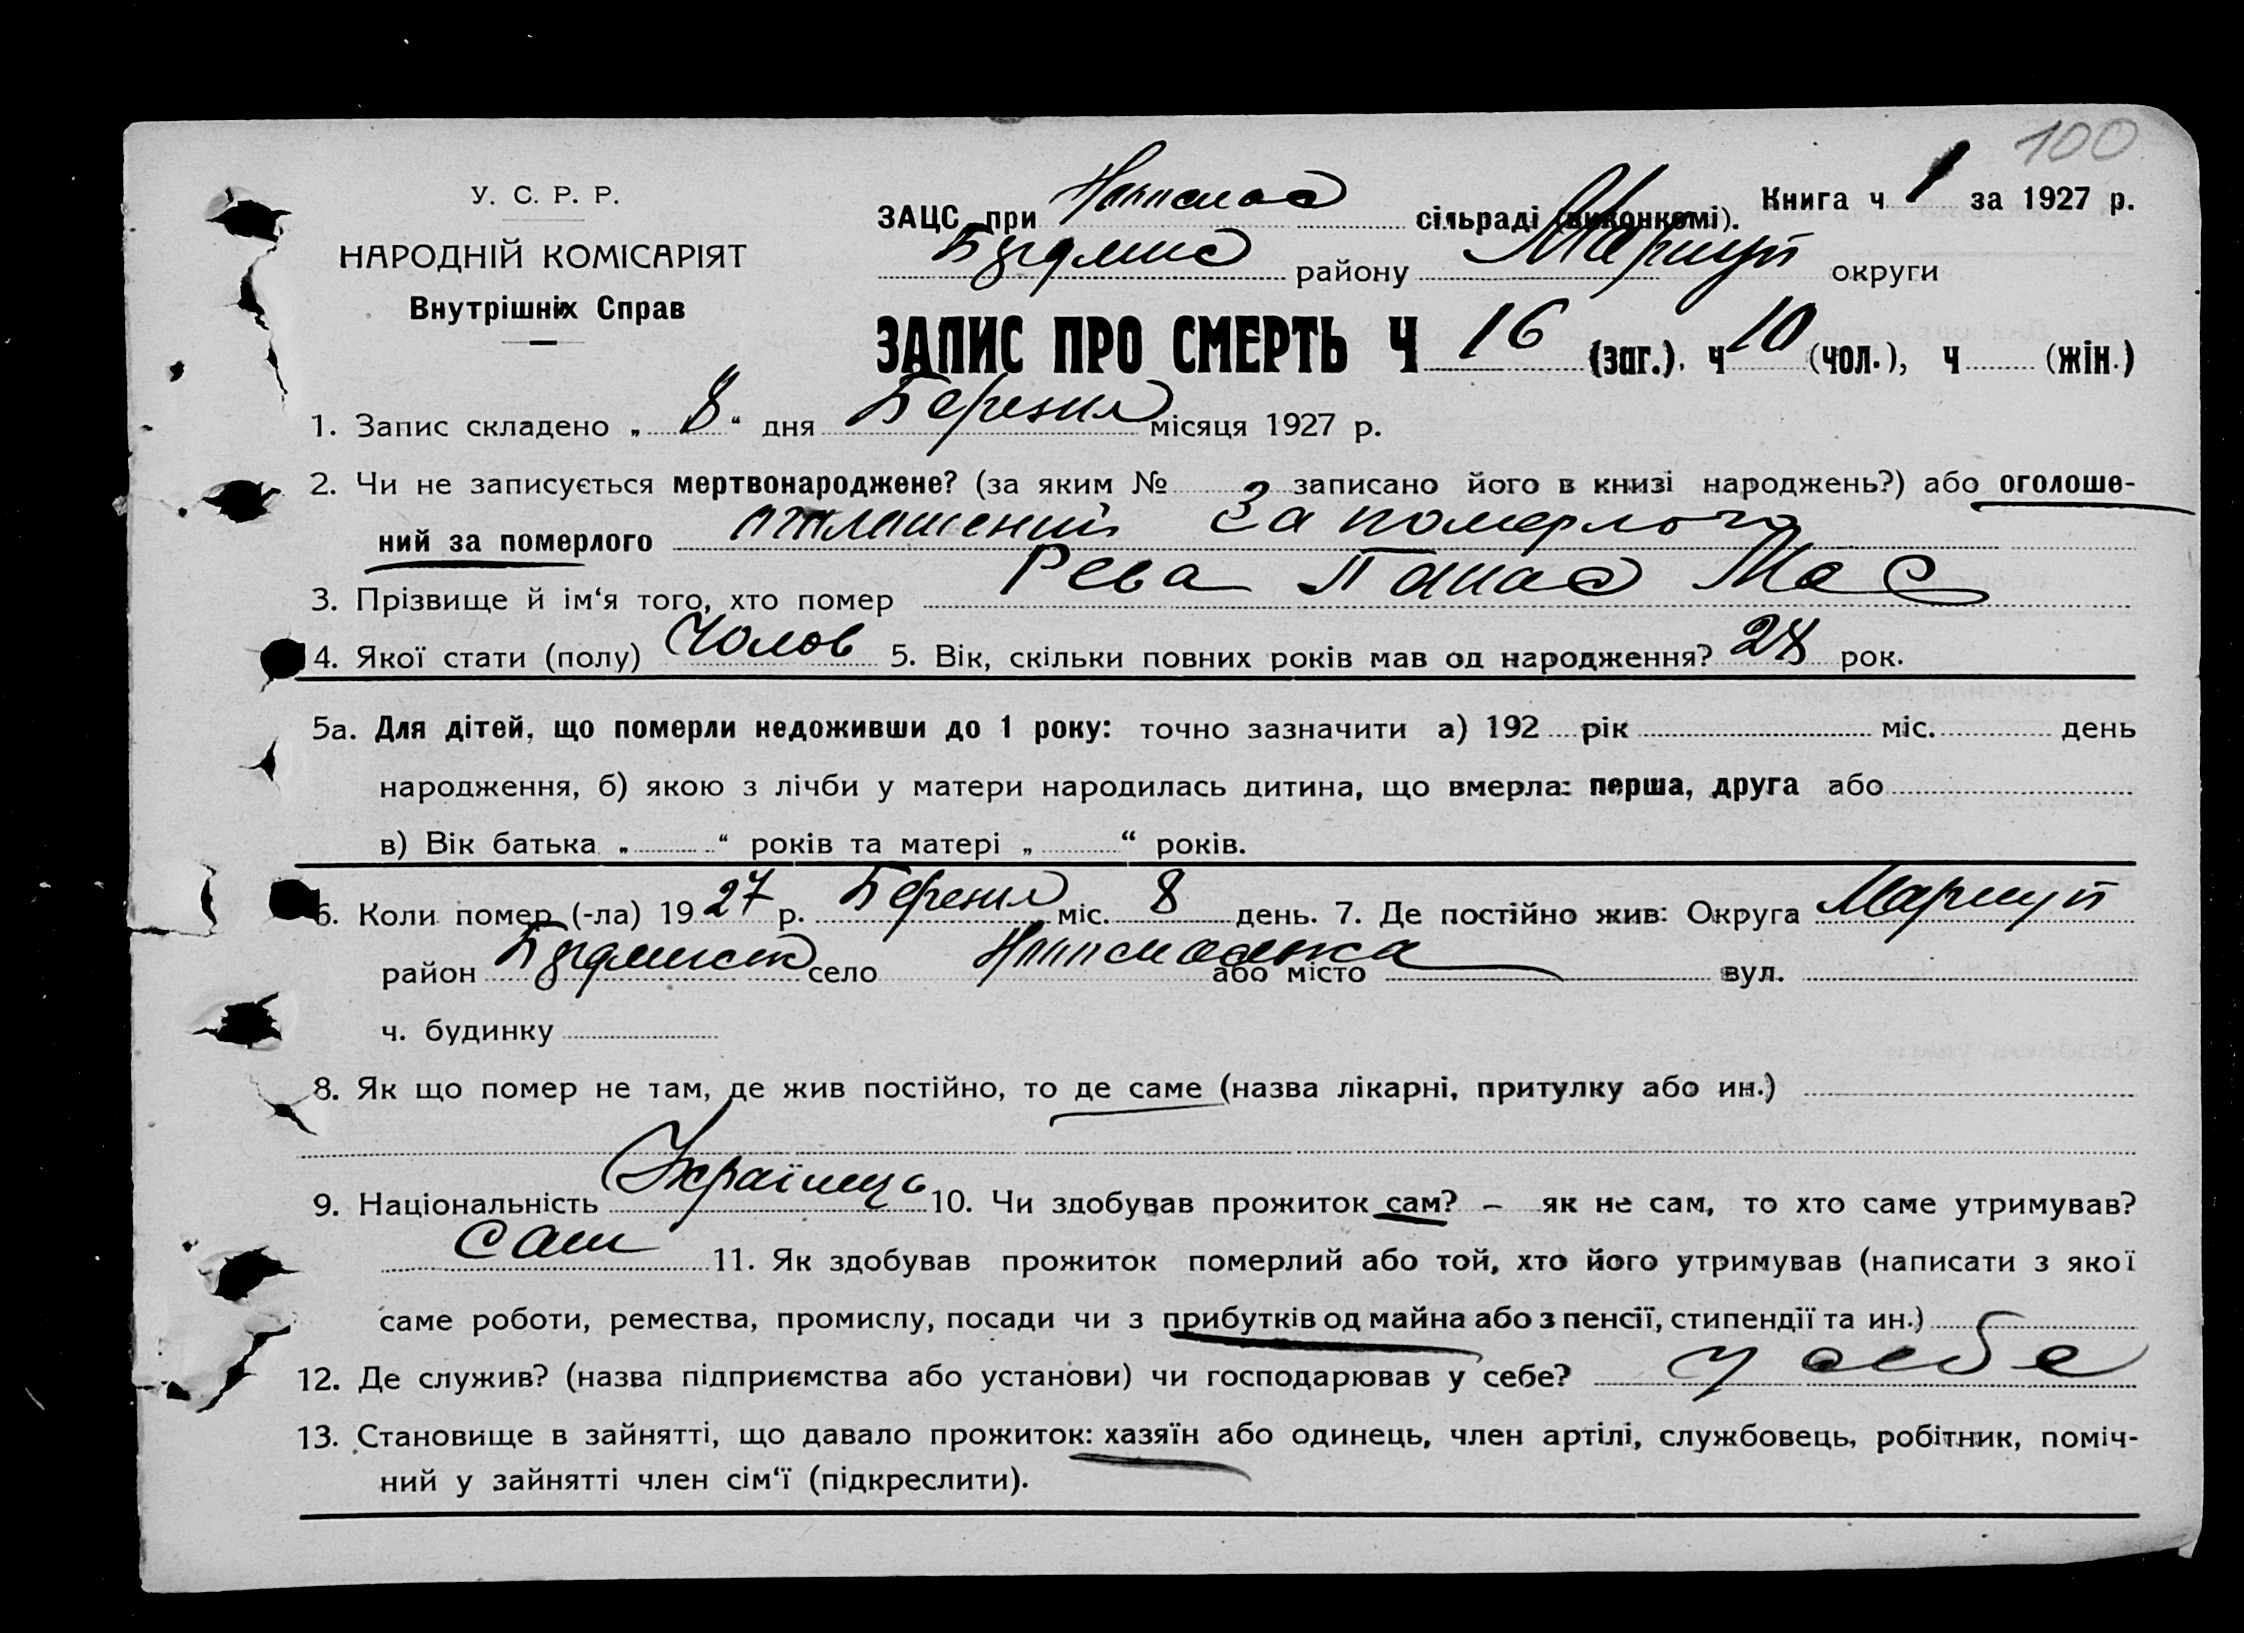 100
У. С. Р. Р.
НАРОДНІЙ КОМІСАРІЯТ
Внутрішніх Справ
Книга ч 1 за 1927 р.
ЗАЦС при сільраді (виконкомі).
району Маріуп округи
ЗАПИС ПРО СМЕРТЬ Ч 16 (заг.). ч 10 (чол.), ч (жін.)
1. Запис складено „ 8 “ дня Березня місяця 1927 р.
2. Чи не записується мертвонароджене? (за яким № записано його в книзі народжень?) або оголоше-
ний за померлого за померлого
3. Прізвище й ім‘я того, хто помер Рева Панас Мас
4. Якої стати (полу) Чолов 5. Вік, скільки повних років мав од народження? рок.
5а. Для дітей, що померли недоживши до 1 року: точно зазначити а) 192 рік міс. день
народження, б) якою з лічби у матери народилась дитина, що вмерла: перша, друга або
в) Вік батька „ “ років та матері „ “ років.
6. Коли помер (-ла) 1927 р. Березня міс. 8 день. 7. Де постійно жив: Округа Маріуп
район село або місто вул.
ч. будинку
8. Як що помер не там, де жив постійно, то де саме (назва лікарні, притулку або ин.)
9. Національність Українець 10. Чи здобував прожиток сам? – як не сам, то хто саме утримував?
сам 11. Як здобував прожиток померлий або той, хто його утримував (написати з якої
саме роботи, ремества, промислу, посади чи з прибутків од майна або з пенсії, стипендії та ин.)
12. Де служив? (назва підприємства або установи) чи господарював у себе? у себе
13. Становище в зайнятті, що давало прожиток: хазяїн або одинець, член артілі, службовець, робітник, поміч-
ний у зайнятті член сім‘ї (підкреслити).